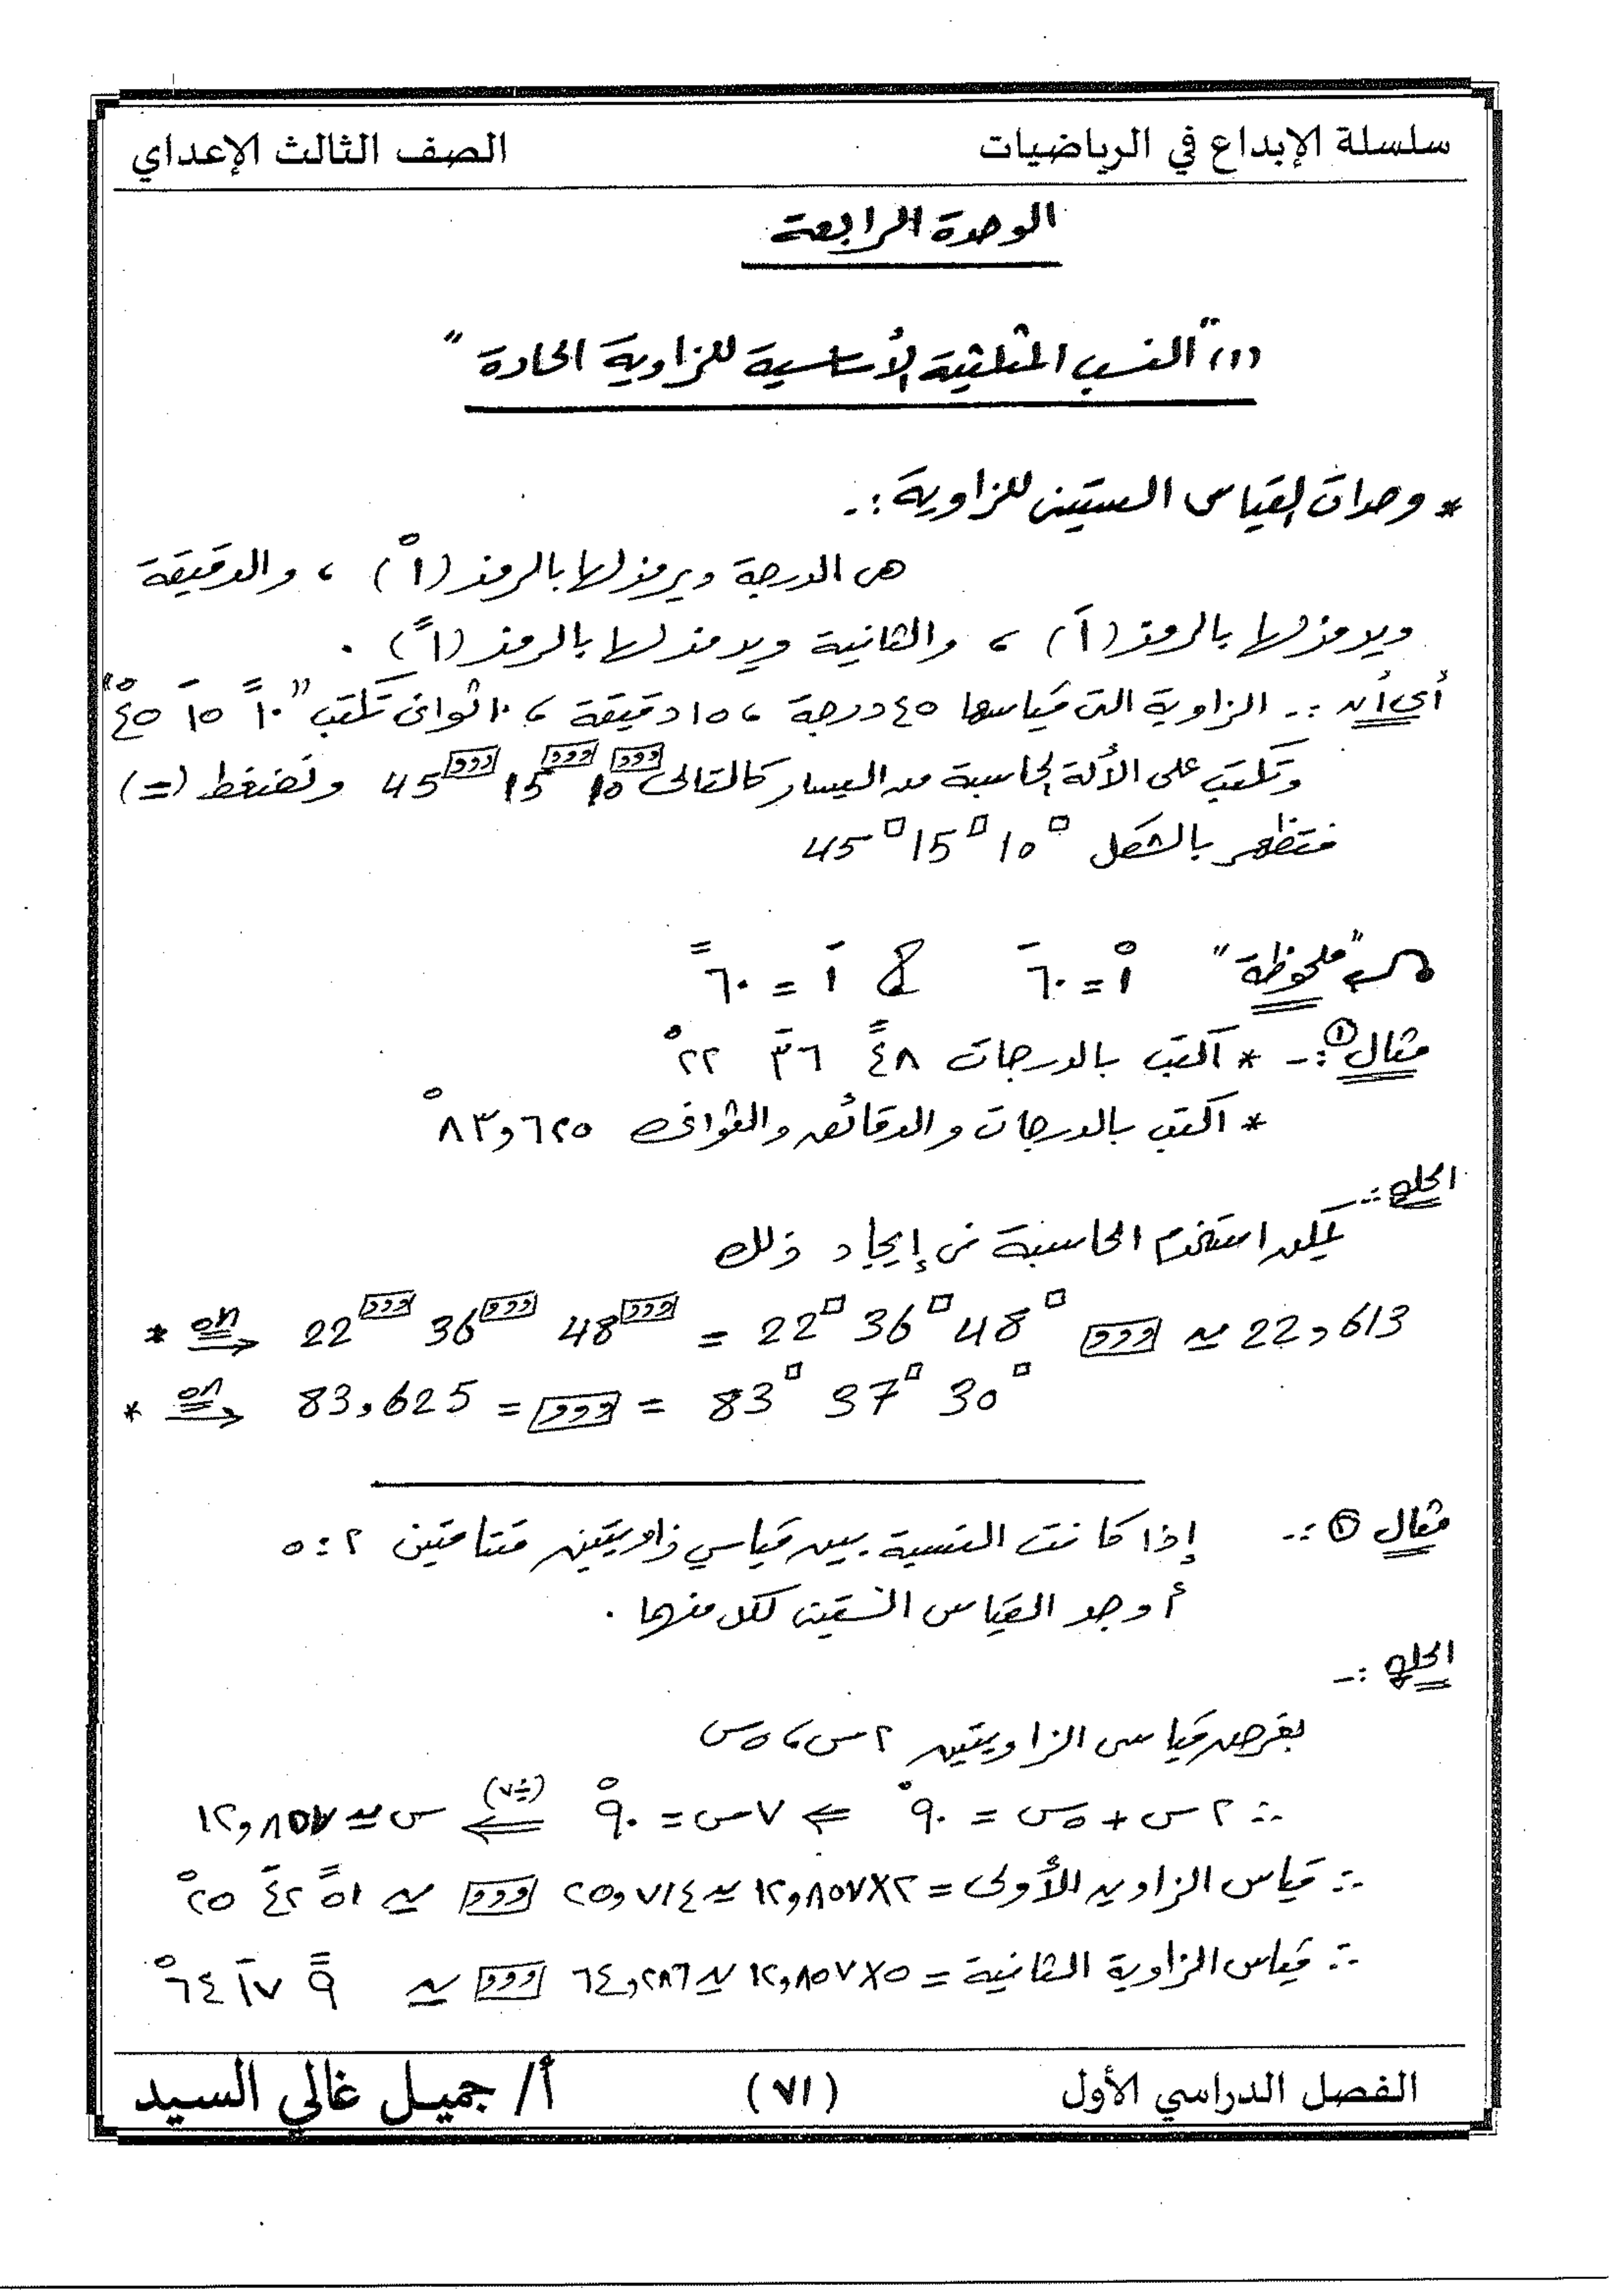 سلسلة الإبداع في الرياضيات
الصف الثالث الإعداي
الوحدة الرابعة
(١) "النسب المثلثية الأساسية للزاوية الحادة"
* وحدات القياس الستينى للزاوية :-
هى الدرجة ويرمز لها بالرمز (١°) ، والدقيقة
ويرمز لها بالرمز (١َ) ، والثانية ويرمز لها بالرمز (١ً) .
أي أن :- الزاوية التى قياسها ٤٥ درجة ، ١٥ دقيقة ، ١٠ ثوانى تكتب "١٠ً ١٥َ ٤٥°"
وتكتب على الألة الحاسبة من اليسار كالتالى 45 ,,, 15 ,,, 10 ,,, وتضغط (=)
فتظهر بالشكل 45° 15° 10°
"ملحوظة" ١° = ٦٠َ & ١َ = ٦٠ً
مثال ① :- * اكتب بالدرجات ٤٨ً ٣٦َ ٢٢°
* اكتب بالدرجات والدقائق والثوانى ٨٣,٦٢٥°
الحل :-
يمكن استخدم الحاسبة فى إيجاد ذلك
* on → 22 ,,, 36 ,,, 48 ,,, = 22° 36° 48° ,,, ≃ 22,613
* on → 83,625 = ,,, = 83° 37° 30°
مثال ② :- إذا كانت النسبة بين قياسي زاويتين متتامتين ٢ : ٥
أوجد القياس الستينى لكل منهما .
الحل :-
بفرض قياسى الزاويتين ٢س ، ٥س
∴ ٢س + ٥س = ٩٠° ⇐ ٧س = ٩٠° (÷٧) ⇐ س ≃ ١٢,٨٥٧
∴ قياس الزاويه الأولى = ٢×١٢,٨٥٧ ≃ ٢٥,٧١٤ ,,, ≃ ٥١ً ٤٢َ ٢٥°
∴ قياس الزاوية الثانية = ٥×١٢,٨٥٧ ≃ ٦٤,٢٨٦ ,,, ≃ ٩ً ١٧َ ٦٤°
الفصل الدراسي الأول
(٧١)
أ/ جميل غالي السيد